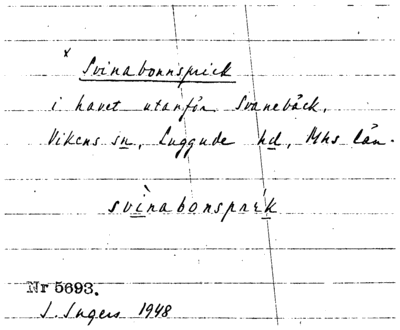 x Svinabonnsprick
i havet utanför Svanebäck,
Vikens sn, Luggude hd, Mhs län.
svìnabonsprik
Nr 5693.
I. Ingers 1948